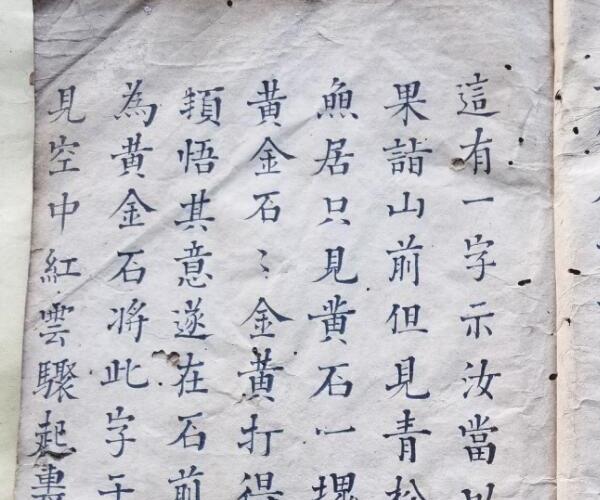 這有一字示汝當
果詣山前但見青松
魚居只見黄石一塊
黃金石〻金黄打得
頓悟其意遂在石前
為黄金石将此字于
見空中紅雲驟起